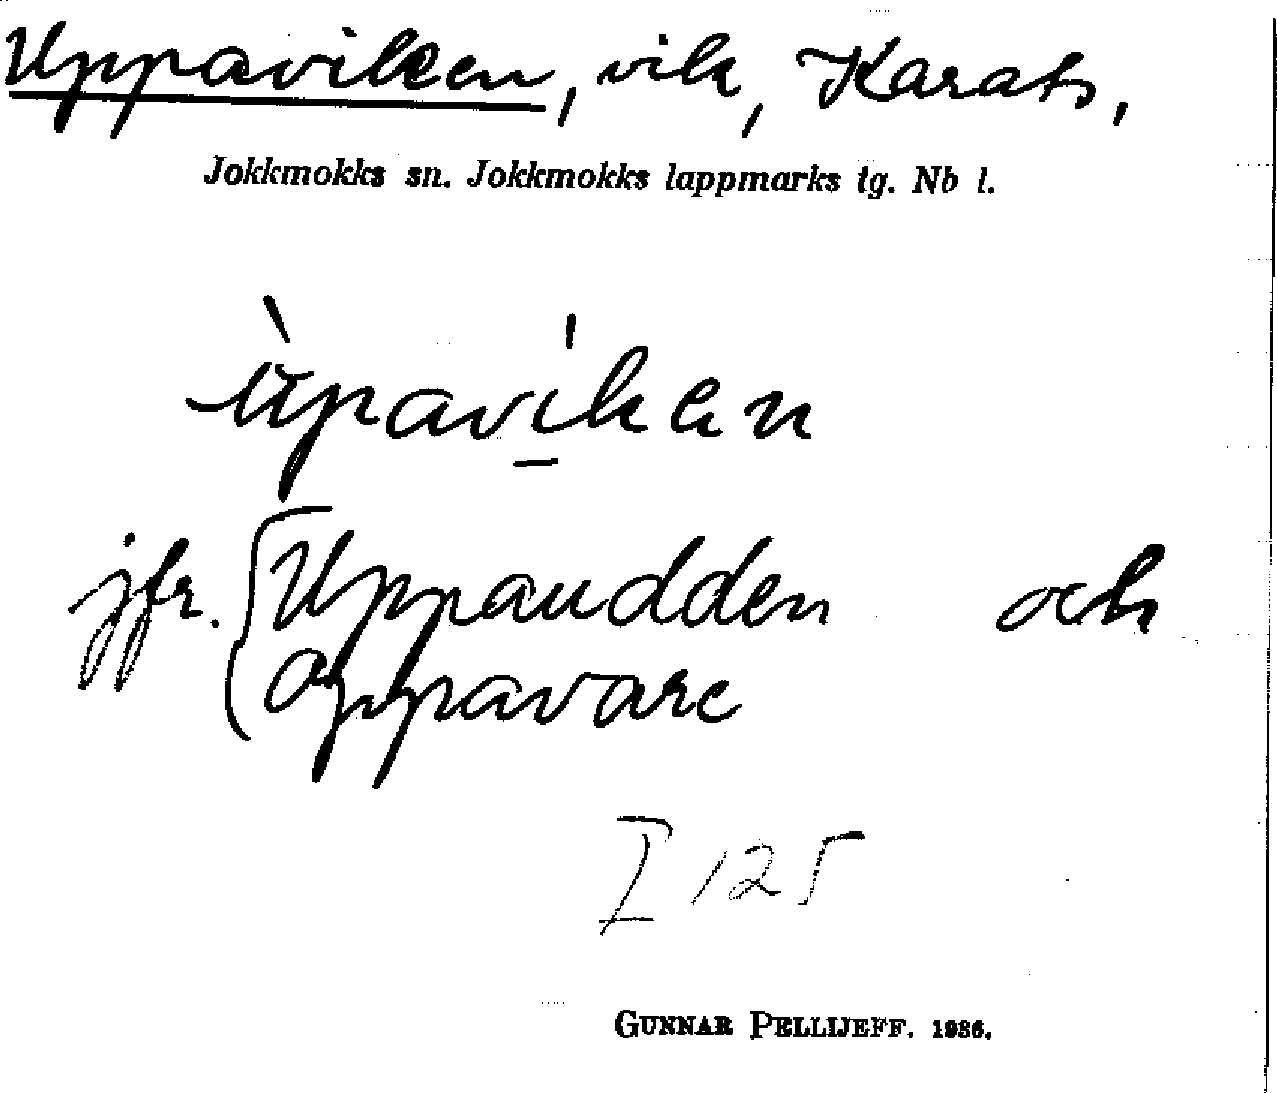 Uppaviken, vik, Karats,
Jokkmokks sn. Jokkmokks lappmarks tg. Nb l.
ùpavi̱ken
jfr. { Uppaudden och
Appavare
I 125
GUNNAR PELLIJEFF. 1936.